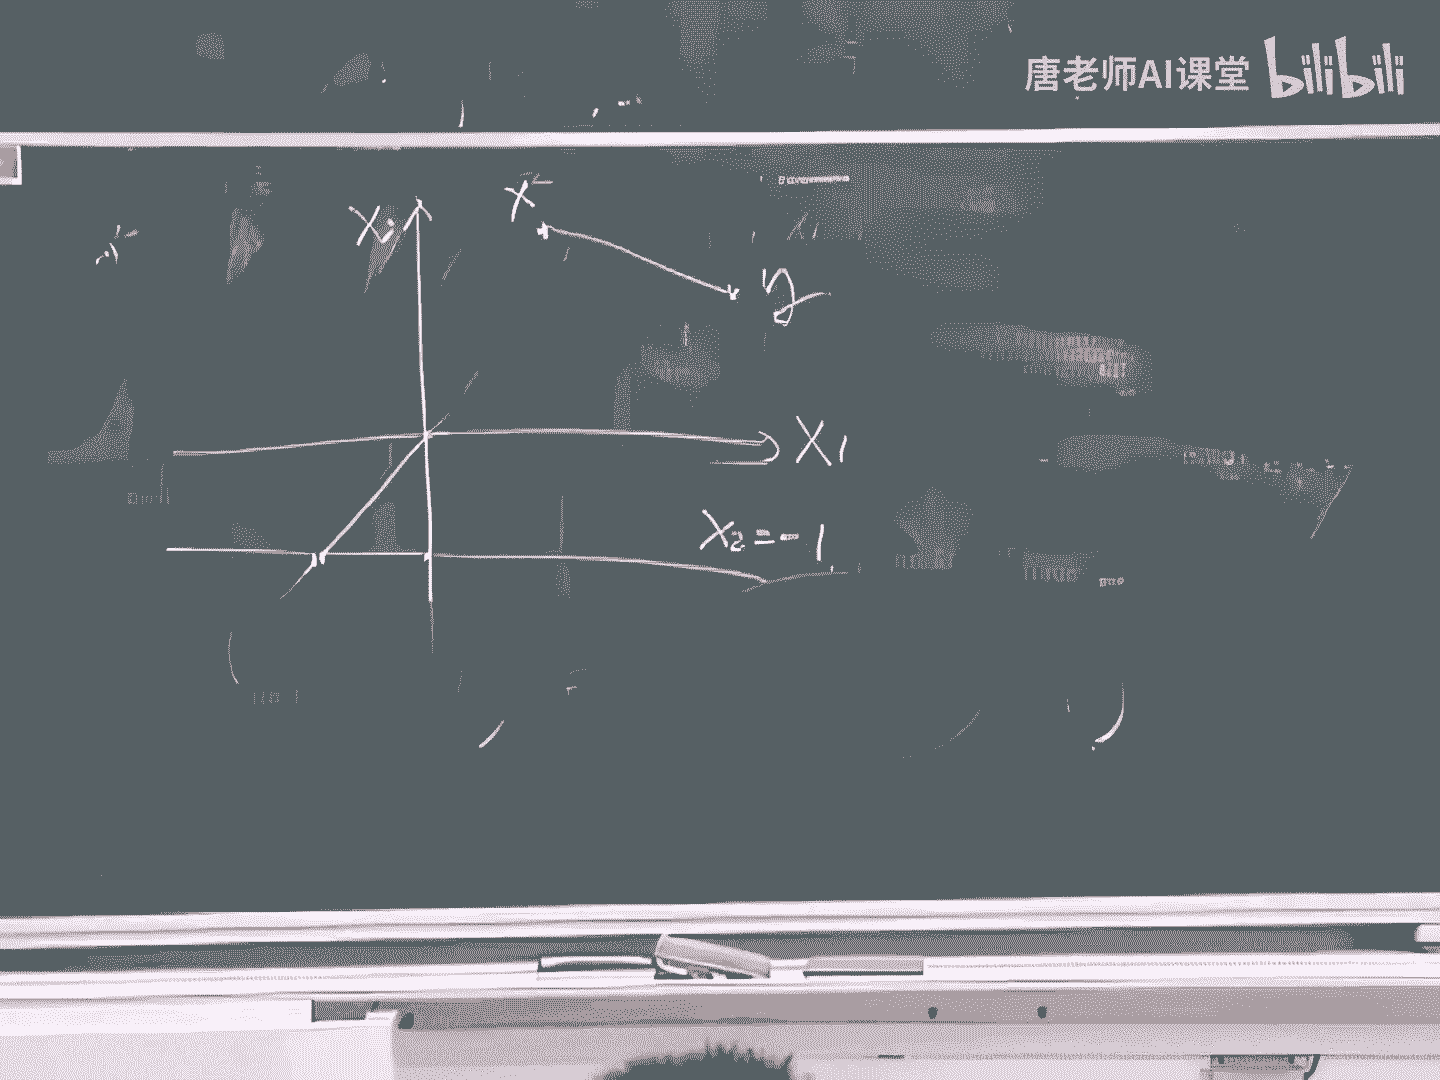 唐老师AI课堂 bilibili
X
y
X1
X2=-1